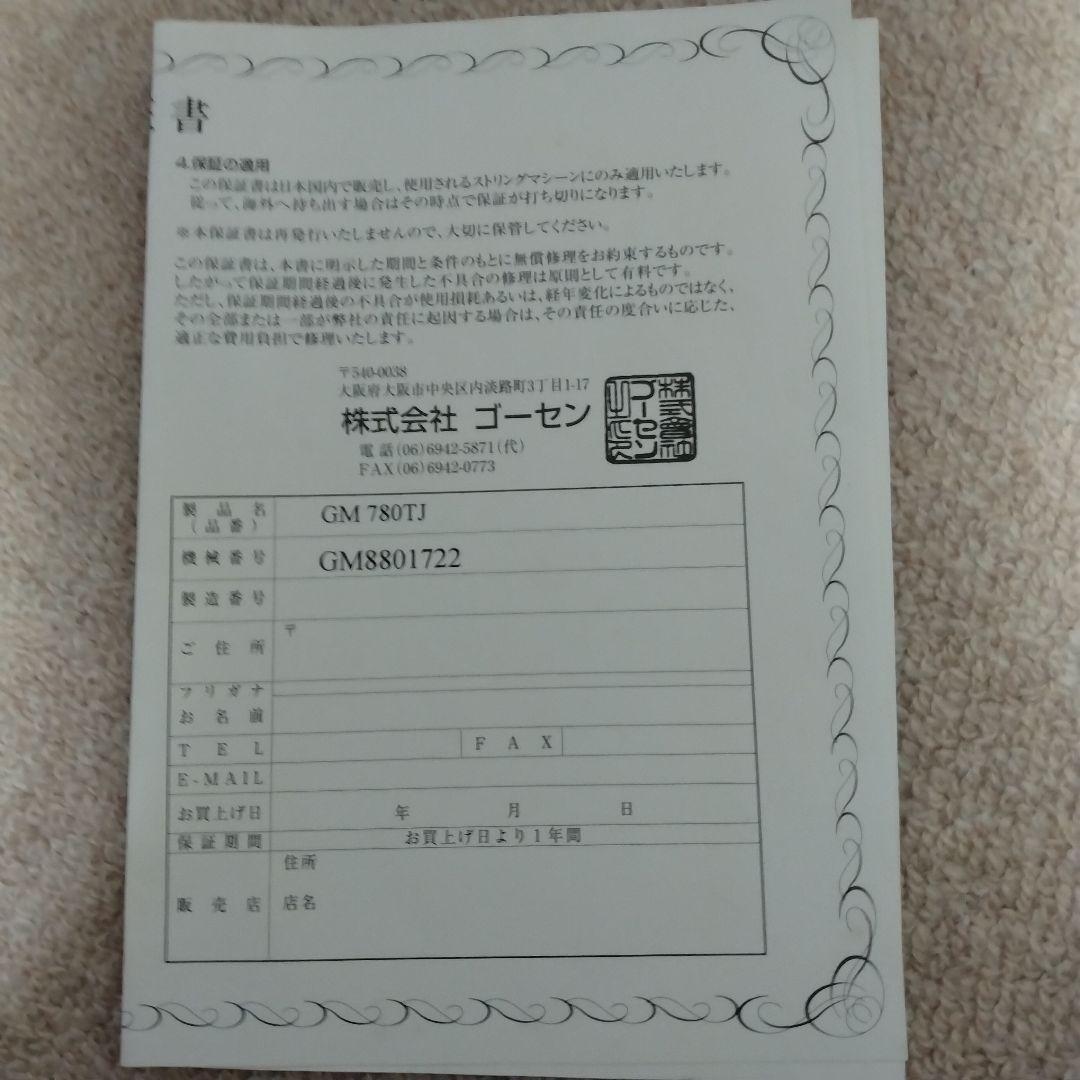 書
4.保証の適用
この保証書は日本国内で販売し、使用されるストリングマシーンにのみ適用いたします。
従って、海外へ持ち出す場合はその時点で保証が打ち切りになります。
※本保証書は再発行いたしませんので、大切に保管してください。
この保証書は、本書に明示した期間と条件のもとに無償修理をお約束するものです。
したがって保証期間経過後に発生した不具合の修理は原則として有料です。
ただし、保証期間経過後の不具合が使用損耗あるいは、経年変化によるものではなく、
その全部または一部が弊社の責任に起因する場合は、その責任の度合いに応じた、
適正な費用負担で修理いたします。
〒540-0038
大阪府大阪市中央区内淡路町3丁目1-17
株式会社 ゴーセン
電話(06)6942-5871(代)
FAX(06)6942-0773
株式會社
ゴーセン
之印
製品名 GM 780TJ
(品番)
機械番号 GM8801722
製造番号
ご住所 〒
フリガナ
お名前
TEL FAX
E-MAIL
お買上げ日 年 月 日
保証期間 お買上げ日より1年間
住所
販売店 店名